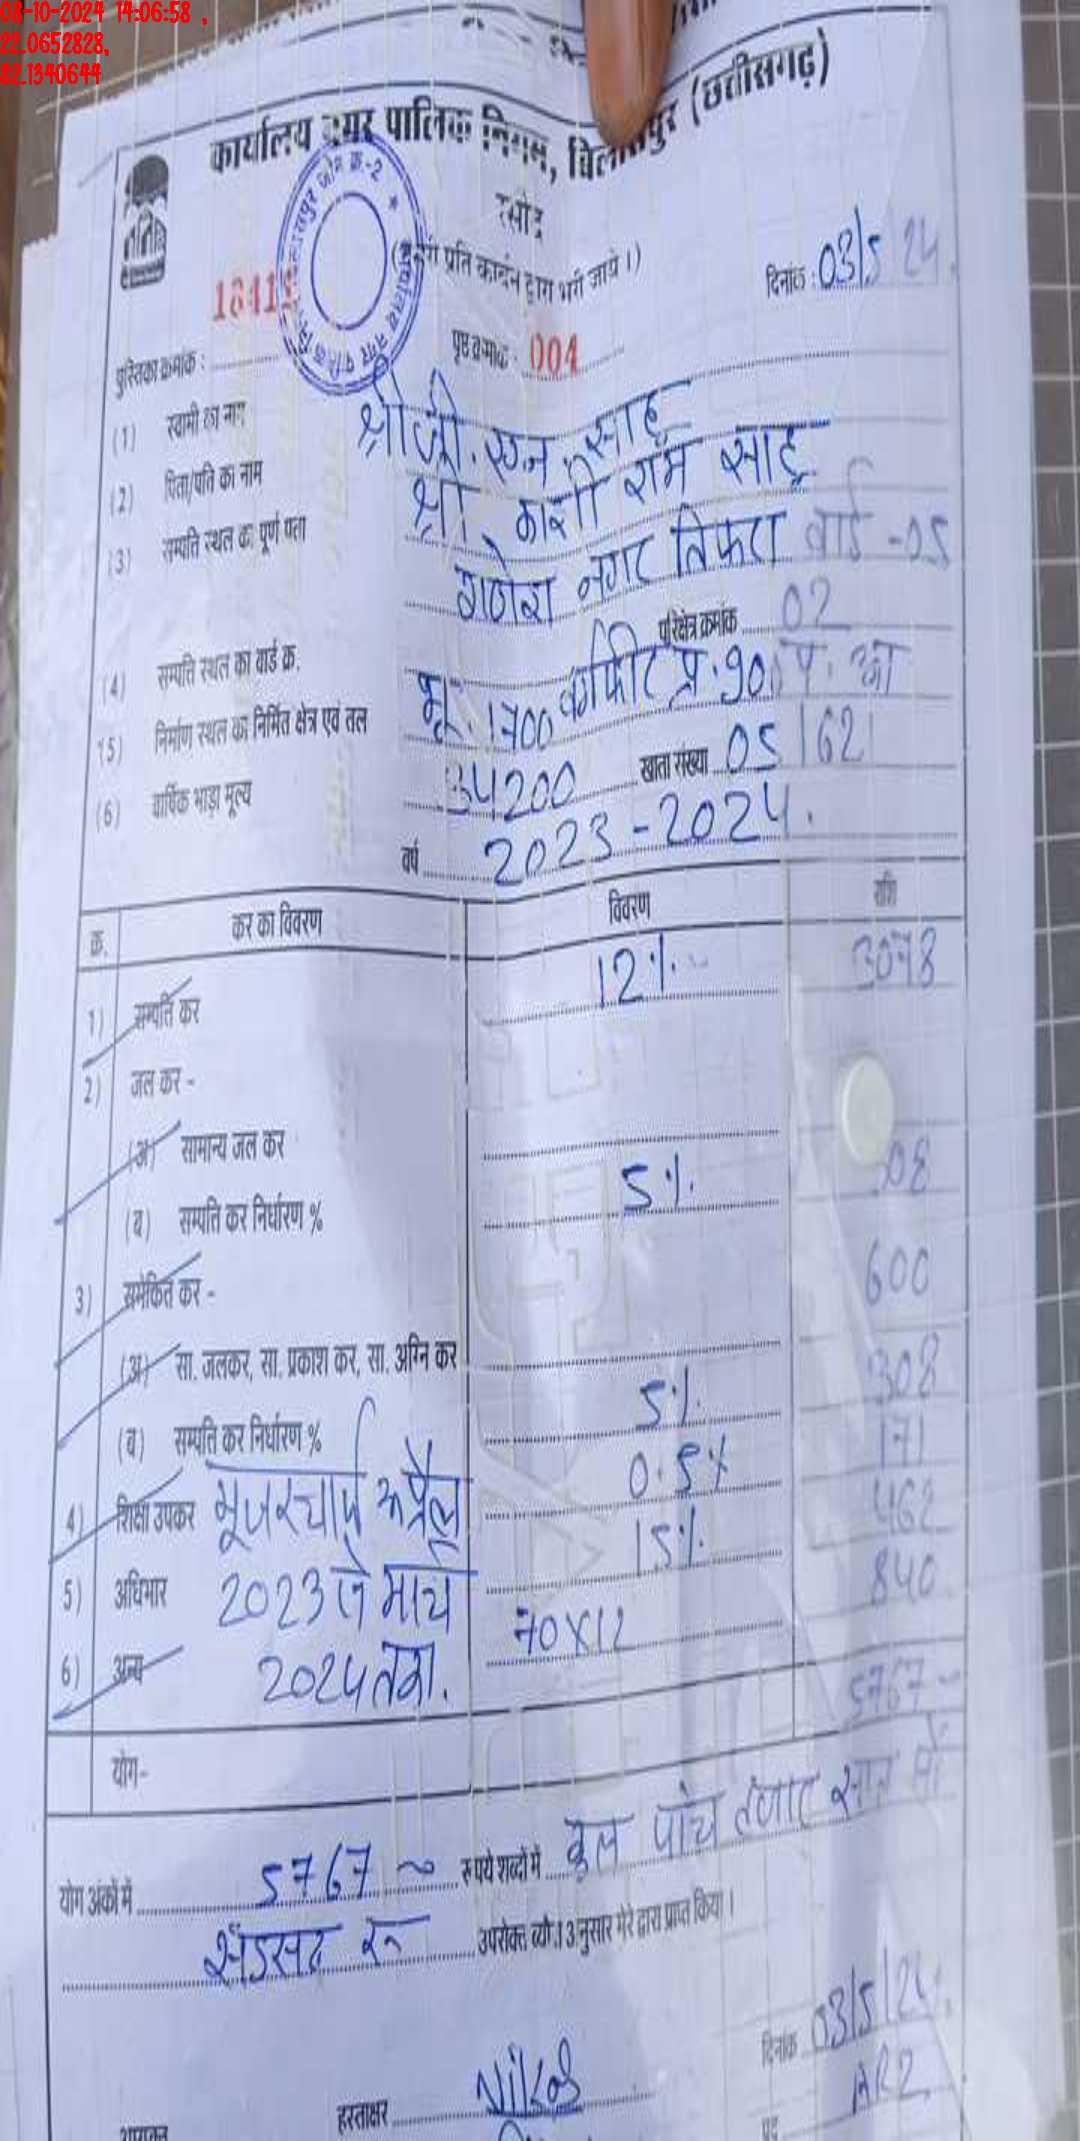 08-10-2024 14:06:58 ,
22.0652828,
82.1340644
कार्यालय नगर पालिक निगम, बिलासपुर (छत्तीसगढ़)
रसीद
दिनांक : 03/5/24.
पुस्तिका क्रमांक :
पृष्ठ क्रमांक : 004
(1) स्वामी का नाम श्री जी. एन. साहू
(2) पिता/पति का नाम श्री काशी राम साहू
(3) सम्पति स्थल का पूर्ण पता गणेश नगर तिफरा वार्ड -05
(4) सम्पति स्थल का वार्ड क्र. परिक्षेत्र क्रमांक 02
(5) निर्माण स्थल का निर्मित क्षेत्र एवं तल भू. 1700 वर्गफीट प्र. 900
(6) वार्षिक भाड़ा मूल्य 34200 खाता संख्या 05/62
वर्ष 2023-2024.
क्र. कर का विवरण विवरण राशि
1) सम्पति कर 12%. 3078
2) जल कर -
(अ) सामान्य जल कर
(ब) सम्पति कर निर्धारण % 5%.
3) समेकित कर - 600
(अ) सा. जलकर, सा. प्रकाश कर, सा. अग्नि कर 308
(ब) सम्पति कर निर्धारण % 5%. 171
4) शिक्षा उपकर यूजरचार्ज अप्रैल 0.5% 462
5) अधिभार 2023 से मार्च 15%. 840
6) अन्य 2024 तक. 70X12
योग- 5767
योग अंकों में 5767 रूपये शब्दों में कुल पांच हजार सात सौ
सड़सठ रू उपरोक्त ब्यौरा अनुसार मेरे द्वारा प्राप्त किया।
दिनांक 03/5/24.
हस्ताक्षर Nikos
पद ARI